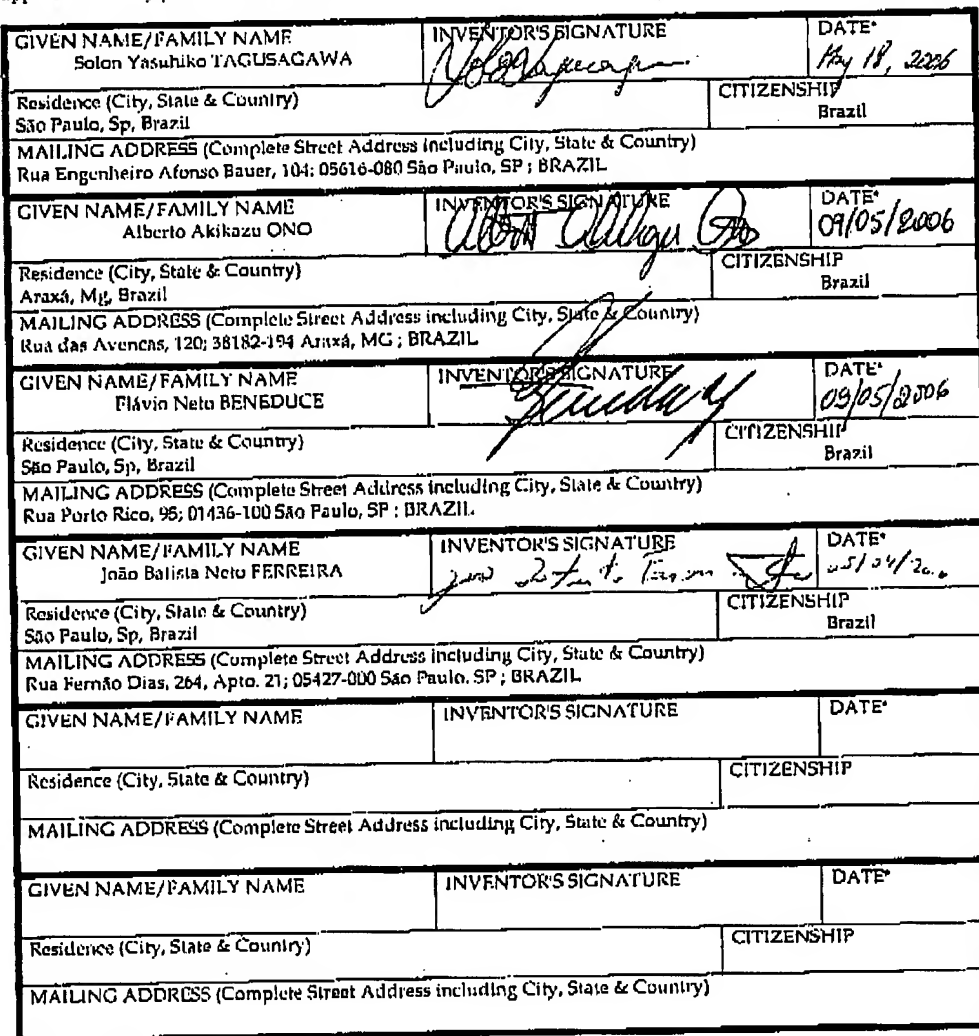 GIVEN NAME/FAMILY NAME INVENTOR'S SIGNATURE DATE*
Solon Yasuhiko TAGUSAGAWA May 18, 2006
Residence (City, State & Country) CITIZENSHIP
São Paulo, Sp, Brazil Brazil
MAILING ADDRESS (Complete Street Address including City, State & Country)
Rua Engenheiro Afonso Bauer, 104; 05616-080 São Paulo, SP ; BRAZIL
GIVEN NAME/FAMILY NAME INVENTOR'S SIGNATURE DATE*
Alberto Akikazu ONO 09/05/2006
Residence (City, State & Country) CITIZENSHIP
Araxá, Mg, Brazil Brazil
MAILING ADDRESS (Complete Street Address including City, State & Country)
Rua das Avencas, 120; 38182-194 Araxá, MG ; BRAZIL
GIVEN NAME/FAMILY NAME INVENTOR'S SIGNATURE DATE*
Flávio Neto BENEDUCE 09/05/2006
Residence (City, State & Country) CITIZENSHIP
São Paulo, Sp, Brazil Brazil
MAILING ADDRESS (Complete Street Address including City, State & Country)
Rua Porto Rico, 95; 01436-100 São Paulo, SP ; BRAZIL
GIVEN NAME/FAMILY NAME INVENTOR'S SIGNATURE DATE*
João Batista Neto FERREIRA
Residence (City, State & Country) CITIZENSHIP
São Paulo, Sp, Brazil Brazil
MAILING ADDRESS (Complete Street Address including City, State & Country)
Rua Fernão Dias, 264, Apto. 21; 05427-000 São Paulo. SP ; BRAZIL
GIVEN NAME/FAMILY NAME INVENTOR'S SIGNATURE DATE*
Residence (City, State & Country) CITIZENSHIP
MAILING ADDRESS (Complete Street Address including City, State & Country)
GIVEN NAME/FAMILY NAME INVENTOR'S SIGNATURE DATE*
Residence (City, State & Country) CITIZENSHIP
MAILING ADDRESS (Complete Street Address including City, State & Country)